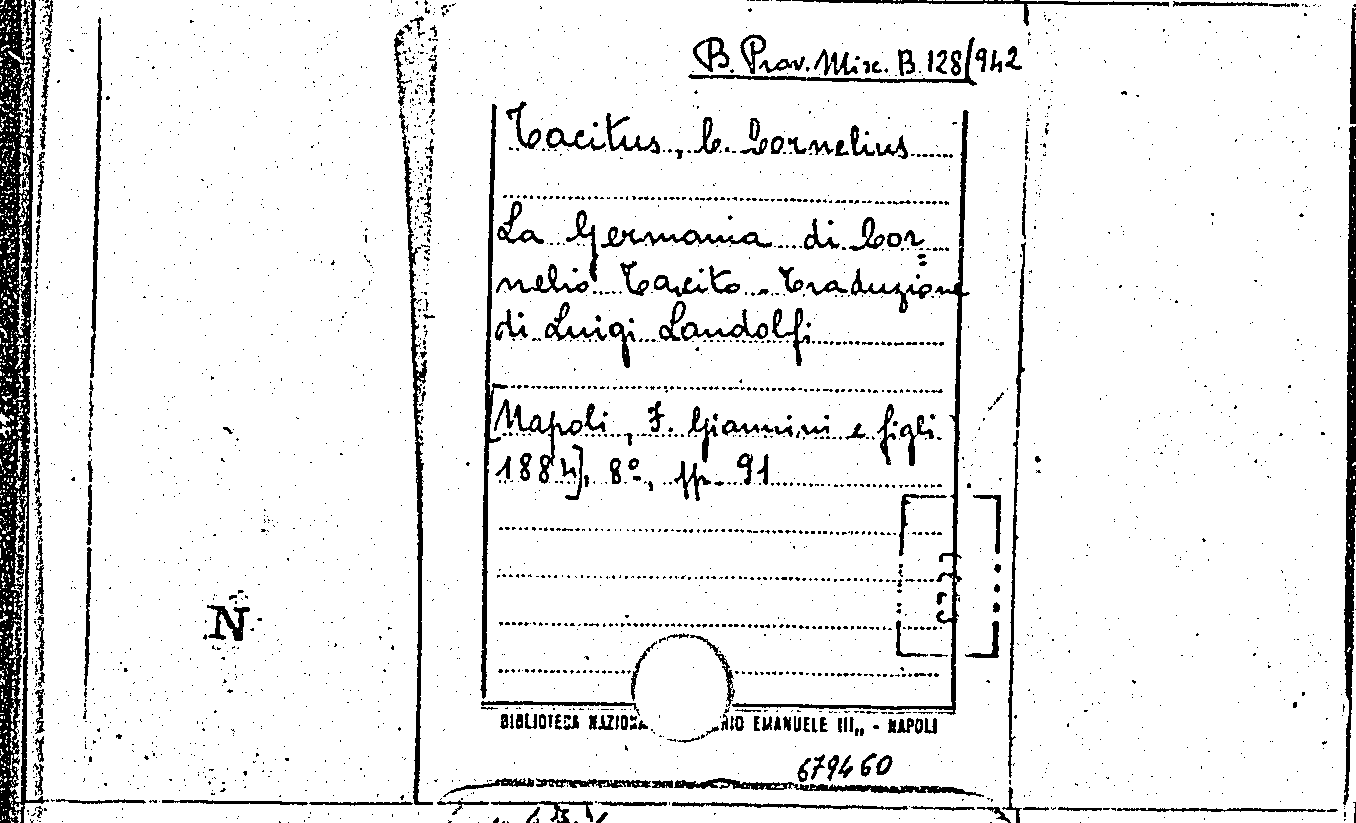 B. Prov. Misc. B. 128/942
Tacitus, C. Cornelius
La Germania di Cor
nelio Tacito. Traduzione
di Luigi Landolfi
[Napoli, F. Giannini e figli
1884], 8º, pp. 91
N
BIBLIOTECA EMANUELE III,, - NAPOLI
679460